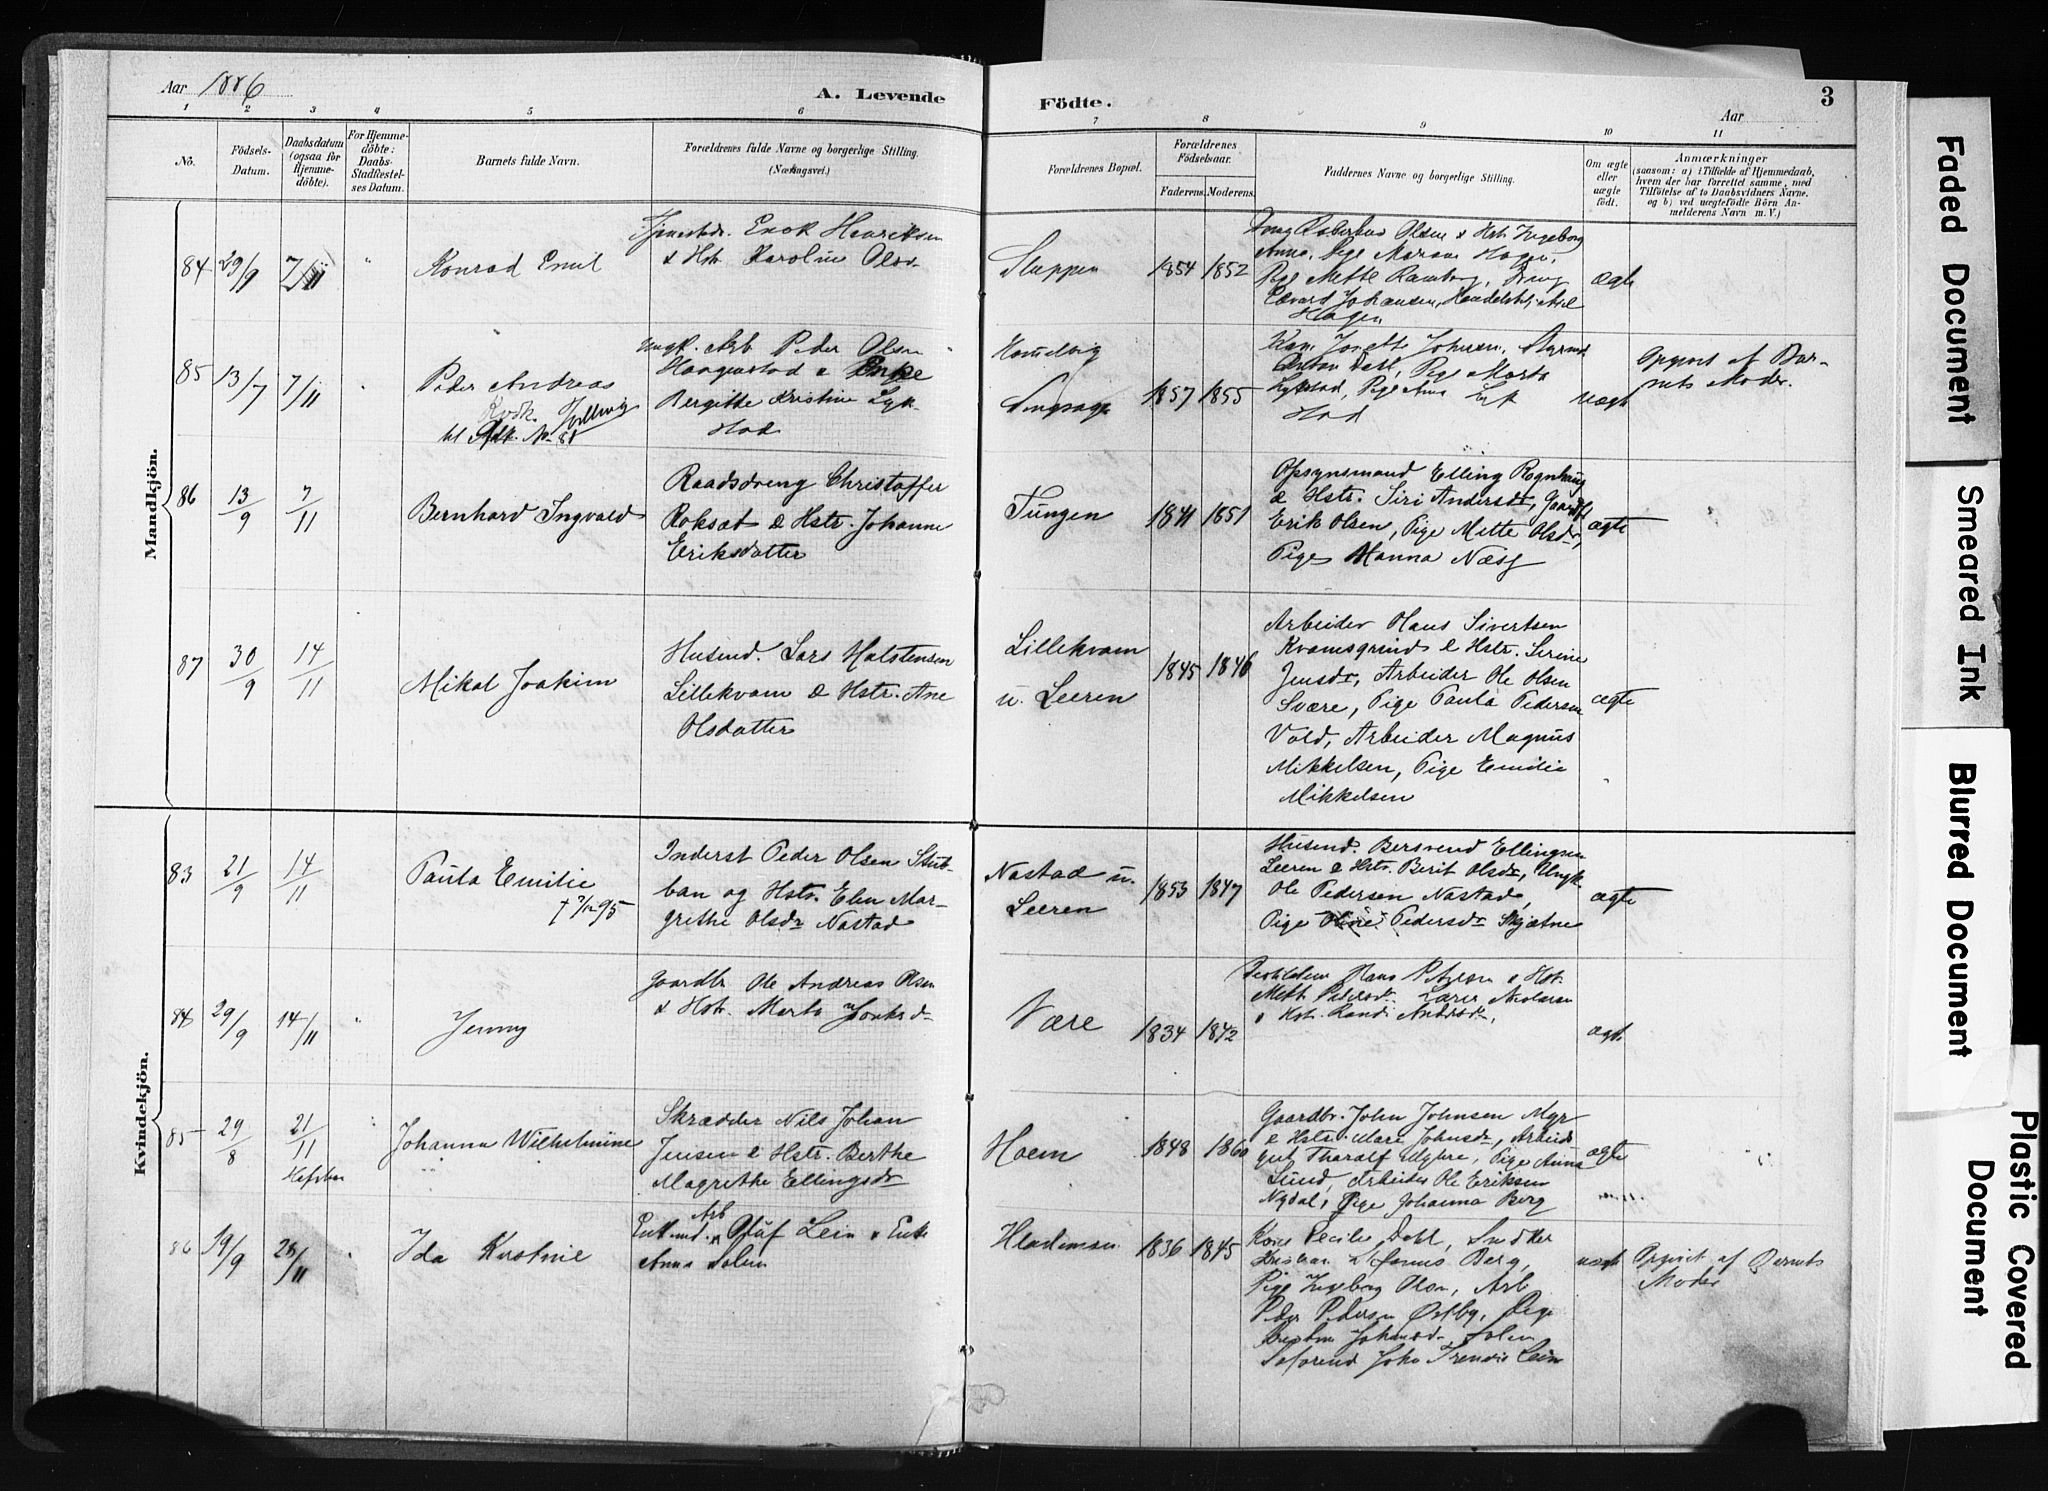 Aar 1886
A. Levende
Födte.
Aar
3
1 2 3 4 5 6 7 8 9 10 11
No.
Födsels-
Datum.
Daabsdatum
(ogsaa for
Hjemme-
döbte).
For Hjemme-
döbte:
Daabs-
Stadfæstel-
ses Datum.
Barnets fulde Navn.
Forældrenes fulde Navne og borgerlige Stilling.
(Næringsvei.)
Forældrenes Bopæl.
Forældrenes
Födselsaar.
Faderens. Moderens.
Faddernes Navne og borgerlige Stilling.
Om ægte
eller
uægte
födt.
Anmærkninger
(saasom: a) i Tilfælde af Hjemmedaab,
hvem der har forrettet samme, med
Tilföielse af to Daabsvidners Navne,
og b) ved uægtefödte Börn An-
melderens Navn m. V.)
Mandkjön.
84 29/9 7/11 "
Konrad Emil
Enok Henriksen
& Hstr. Karoline Olsd.
1854 1852
Olsen & Hst. Ingeborg
Anna, Pige Hagen,
Pige Mette Dreng
Edvard Johansen,
Hagen
ægte
85 13/7 7/11 "
Peder Andreas
Ungk. Arb Peder Olsen
Haagenstad & Enke
Bergitte Kristine Lyk-
stad
1857 1855
Dahl, Pige Marta
uægte
Opgivet af Bar-
nets Moder.
86 13/9 7/11
Bernhard Ingvald
Raadsdreng Christoffer
Roksæt & Hstr. Johanne
Eriksdatter
Tungen
1841 1851
Opsynsmand Elling Rognhaug
& Hstr. Siri Andersdr, Gaardbr
Erik Olsen, Pige Mette Olsdr,
Pige Hanna Næss
ægte
87 30/9 14/11
Mikal Joakim
Husmd. Lars Halstensen
Lillekvam & Hstr. Ane
Olsdatter
Lillekvam
u. Leeren
1845 1846
Arbeider Hans Sivertsen
Kvamsgrind & Hstr. Serine
Jensdr, Arbeider Ole Olsen
Svære, Pige Paula Pedersen
Vold, Arbeider Magnus
Mikkelsen, Pige Emilie
Mikkelsen
ægte
Kvindekjön.
83 21/9 14/11
Paula Emilie
† 7/12 95
Inderst Peder Olsen Stub-
ban og Hstr. Elen Mar-
grethe Olsdr Nastad
Nastad u.
Leeren
1853 1847
Husmd. Bersvend Ellingsen
Leeren & Hstr. Berit Olsdr, Ungk.
Ole Pedersen Nastad,
Pige Oline Pedersdr Skjætne
ægte
84 29/9 14/11 "
Jenny
Gaardbr Ole Andreas Olsen
& Hstr. Marta
Være
1834 1842
Hans & Hst.
& Hstr. Randi
ægte
85 29/8 21/11 "
Johanna Wilhelmine
Skrædder Nils Johan
Jensen & Hstr. Berthe
Magrethe Ellingsdr
Hoem
1848 1860
Gaardbr. John Johnsen Myr
& Hstr. Mare Johnsdr, Arbeids
gut Tharalf Pige Anna
Lund, Arbeider Ole Eriksen
Nydal, Pige Johanna Berg
ægte
86 19/9 28/11 "
Ida Kristine
Enkemd. Arb Oluf Lein & Enke
Anna Solem
1836 1845
Kone Cecilie Dahl, Snedker
Berg,
Pige Ingeborg Olsen, Arb
Peder Pedersen Østby, Pige
uægte
Opgivet af Barnets
Moder
Faded Document
Smeared Ink
Blurred Document
Plastic Covered
Document